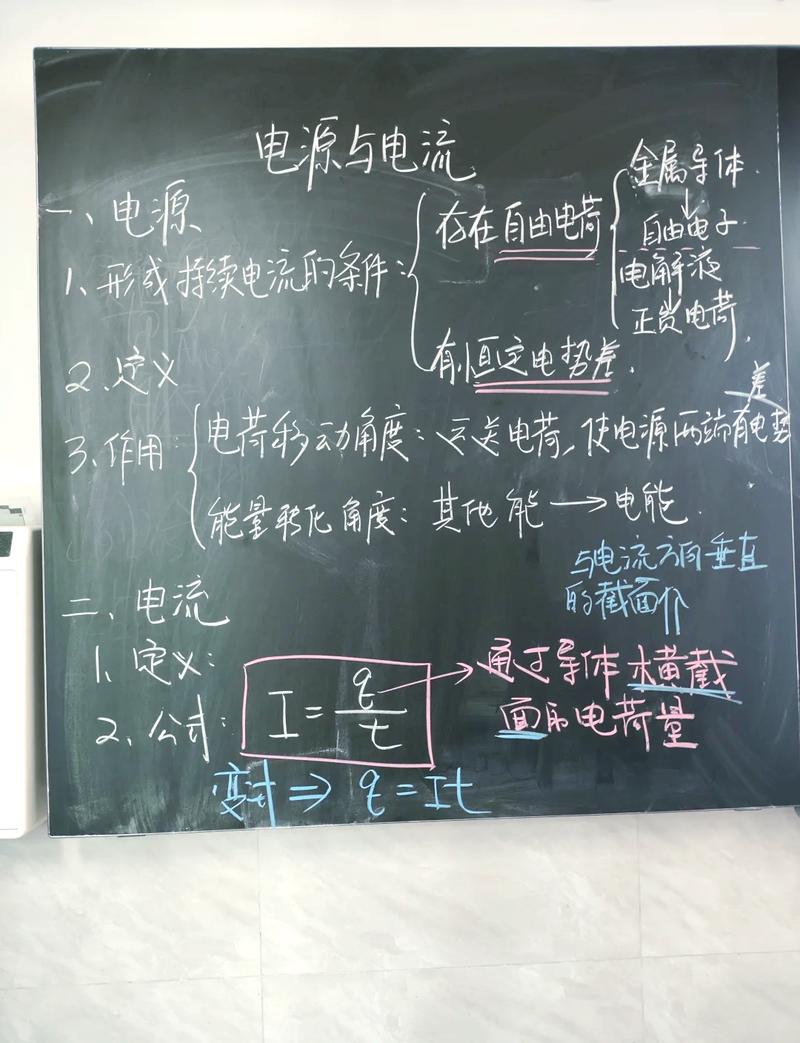 电源与电流
一、电源
1、形成持续电流的条件:
存在自由电荷
金属导体.
↓
自由电子
电解液
↓
正负电荷,
有恒定电势差.
2、定义
3、作用:
电荷移动角度: 运送电荷,使电源两端有电势差
能量转化角度: 其他能→电能.
二、电流
1、定义:
2、公式: I=q/t → 通过导体横截
面的电荷量
与电流方向垂直
的截面⇑
变式⇒ q=It